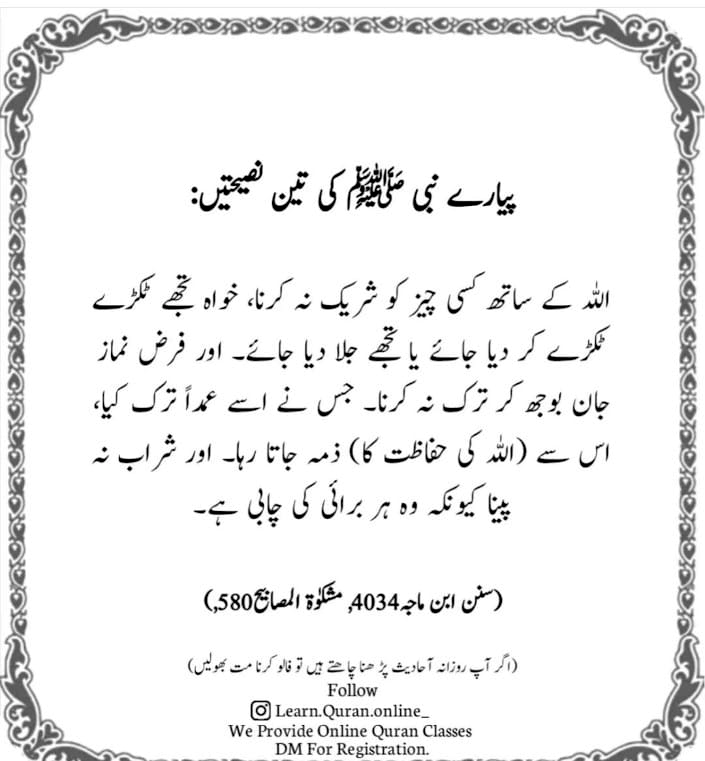 پیارے نبی ﷺ کی تین نصیحتیں:
اللہ کے ساتھ کسی چیز کو شریک نہ کرنا، خواہ تجھے ٹکڑے
ٹکڑے کر دیا جائے یا تجھے جلا دیا جائے۔ اور فرض نماز
جان بوجھ کر ترک نہ کرنا۔ جس نے اسے عمداً ترک کیا،
اس سے (اللہ کی حفاظت کا) ذمہ جاتا رہا۔ اور شراب نہ
پینا کیونکہ وہ ہر برائی کی چابی ہے۔
(سنن ابن ماجہ4034, مشکوٰۃ المصابیح580,)
(اگر آپ روزانہ آحادیث پڑھنا چاھتے ہیں تو فالو کرنا مت بھولیں)
Follow
Learn.Quran.online_
We Provide Online Quran Classes
DM For Registration.